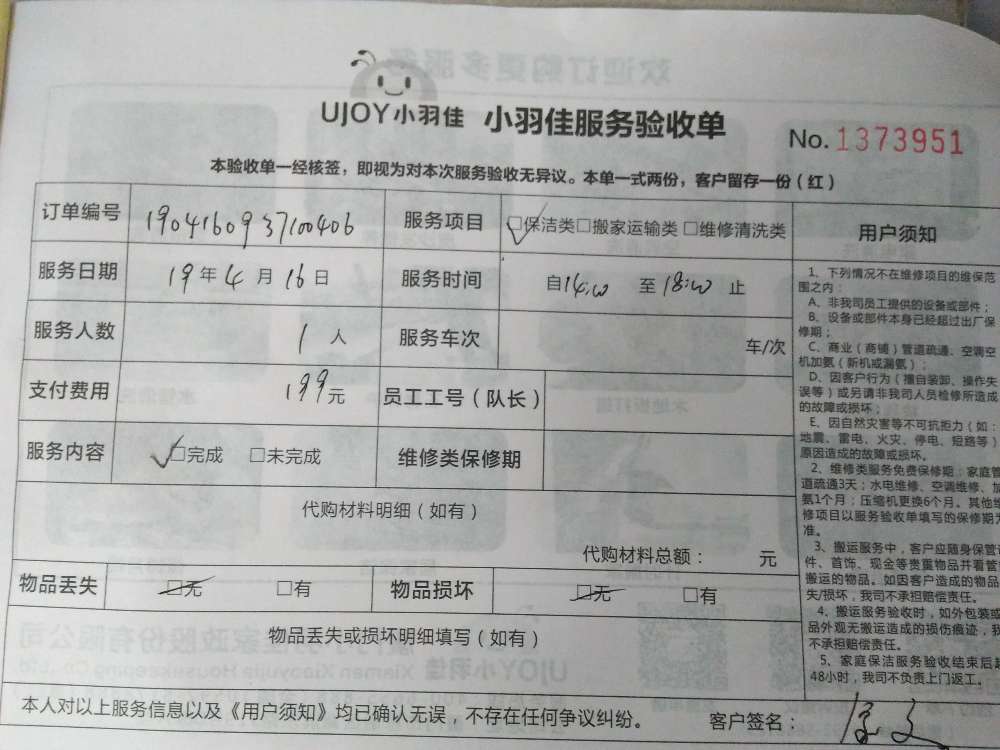 UJOY小羽佳 小羽佳服务验收单
No. 1373951
本验收单一经核签，即视为对本次服务验收无异议。本单一式两份，客户留存一份（红）
订单编号 1904160937100406 服务项目 □保洁类□搬家运输类□维修清洗类
服务日期 19年4月16日 服务时间 自14:00 至18:00止
服务人数 1人 服务车次 车/次
支付费用 199元 员工工号（队长）
服务内容 □完成 □未完成 维修类保修期
代购材料明细（如有）
代购材料总额： 元
物品丢失 □无 □有 物品损坏 □无 □有
物品丢失或损坏明细填写（如有）
本人对以上服务信息以及《用户须知》均已确认无误，不存在任何争议纠纷。 客户签名：
用户须知
1、下列情况不在维修项目的维保范
围之内：
A、非我司员工提供的设备或部件；
B、设备或部件本身已经超过出厂保
修期；
C、商业（商铺）管道疏通、空调空
机加氨（新机或漏氨）；
D、因客户行为（擅自装卸、操作失
误等）或另请非我司人员检修所造成
的故障或损坏；
E、因自然灾害等不可抗拒力（如：
地震、雷电、火灾、停电、短路等）
原因造成的故障或损坏。
2、维修类服务免费保修期：家庭管
道疏通3天；水电维修、空调维修、加
氨1个月；压缩机更换6个月。其他维
修项目以服务验收单填写的保修期为
准。
3、搬运服务中，客户应随身保管
件、首饰、现金等贵重物品并看管
搬运的物品。如因客户造成的物品
失/损坏，我司不承担赔偿责任。
4、搬运服务验收时，如外包装或
品外观无搬运造成的损伤痕迹，我
不承担赔偿责任。
5、家庭保洁服务验收结束后超
48小时，我司不负责上门返工。